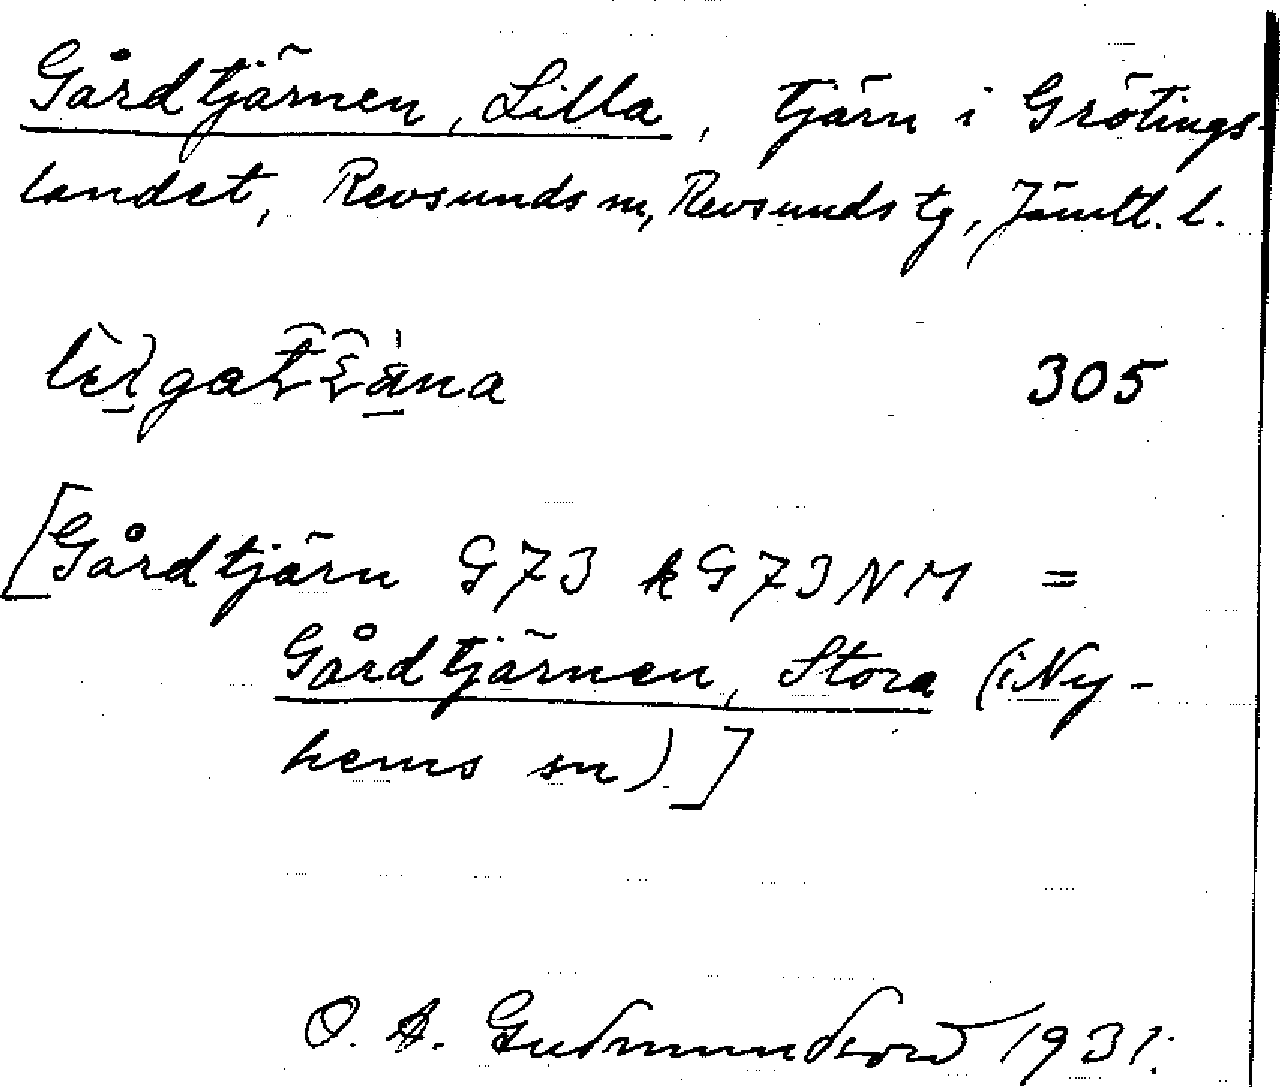 Gårdtjärnen, Lilla, tjärn i Grötings-
landet, Revsunds sn, Revsunds tg, Jämtl. l.
305
[Gårdtjärn G73 k G73NM =
Gårdtjärnen, Stora (i Ny-
hems sn)]
O. A. Gudmundsson 1931.